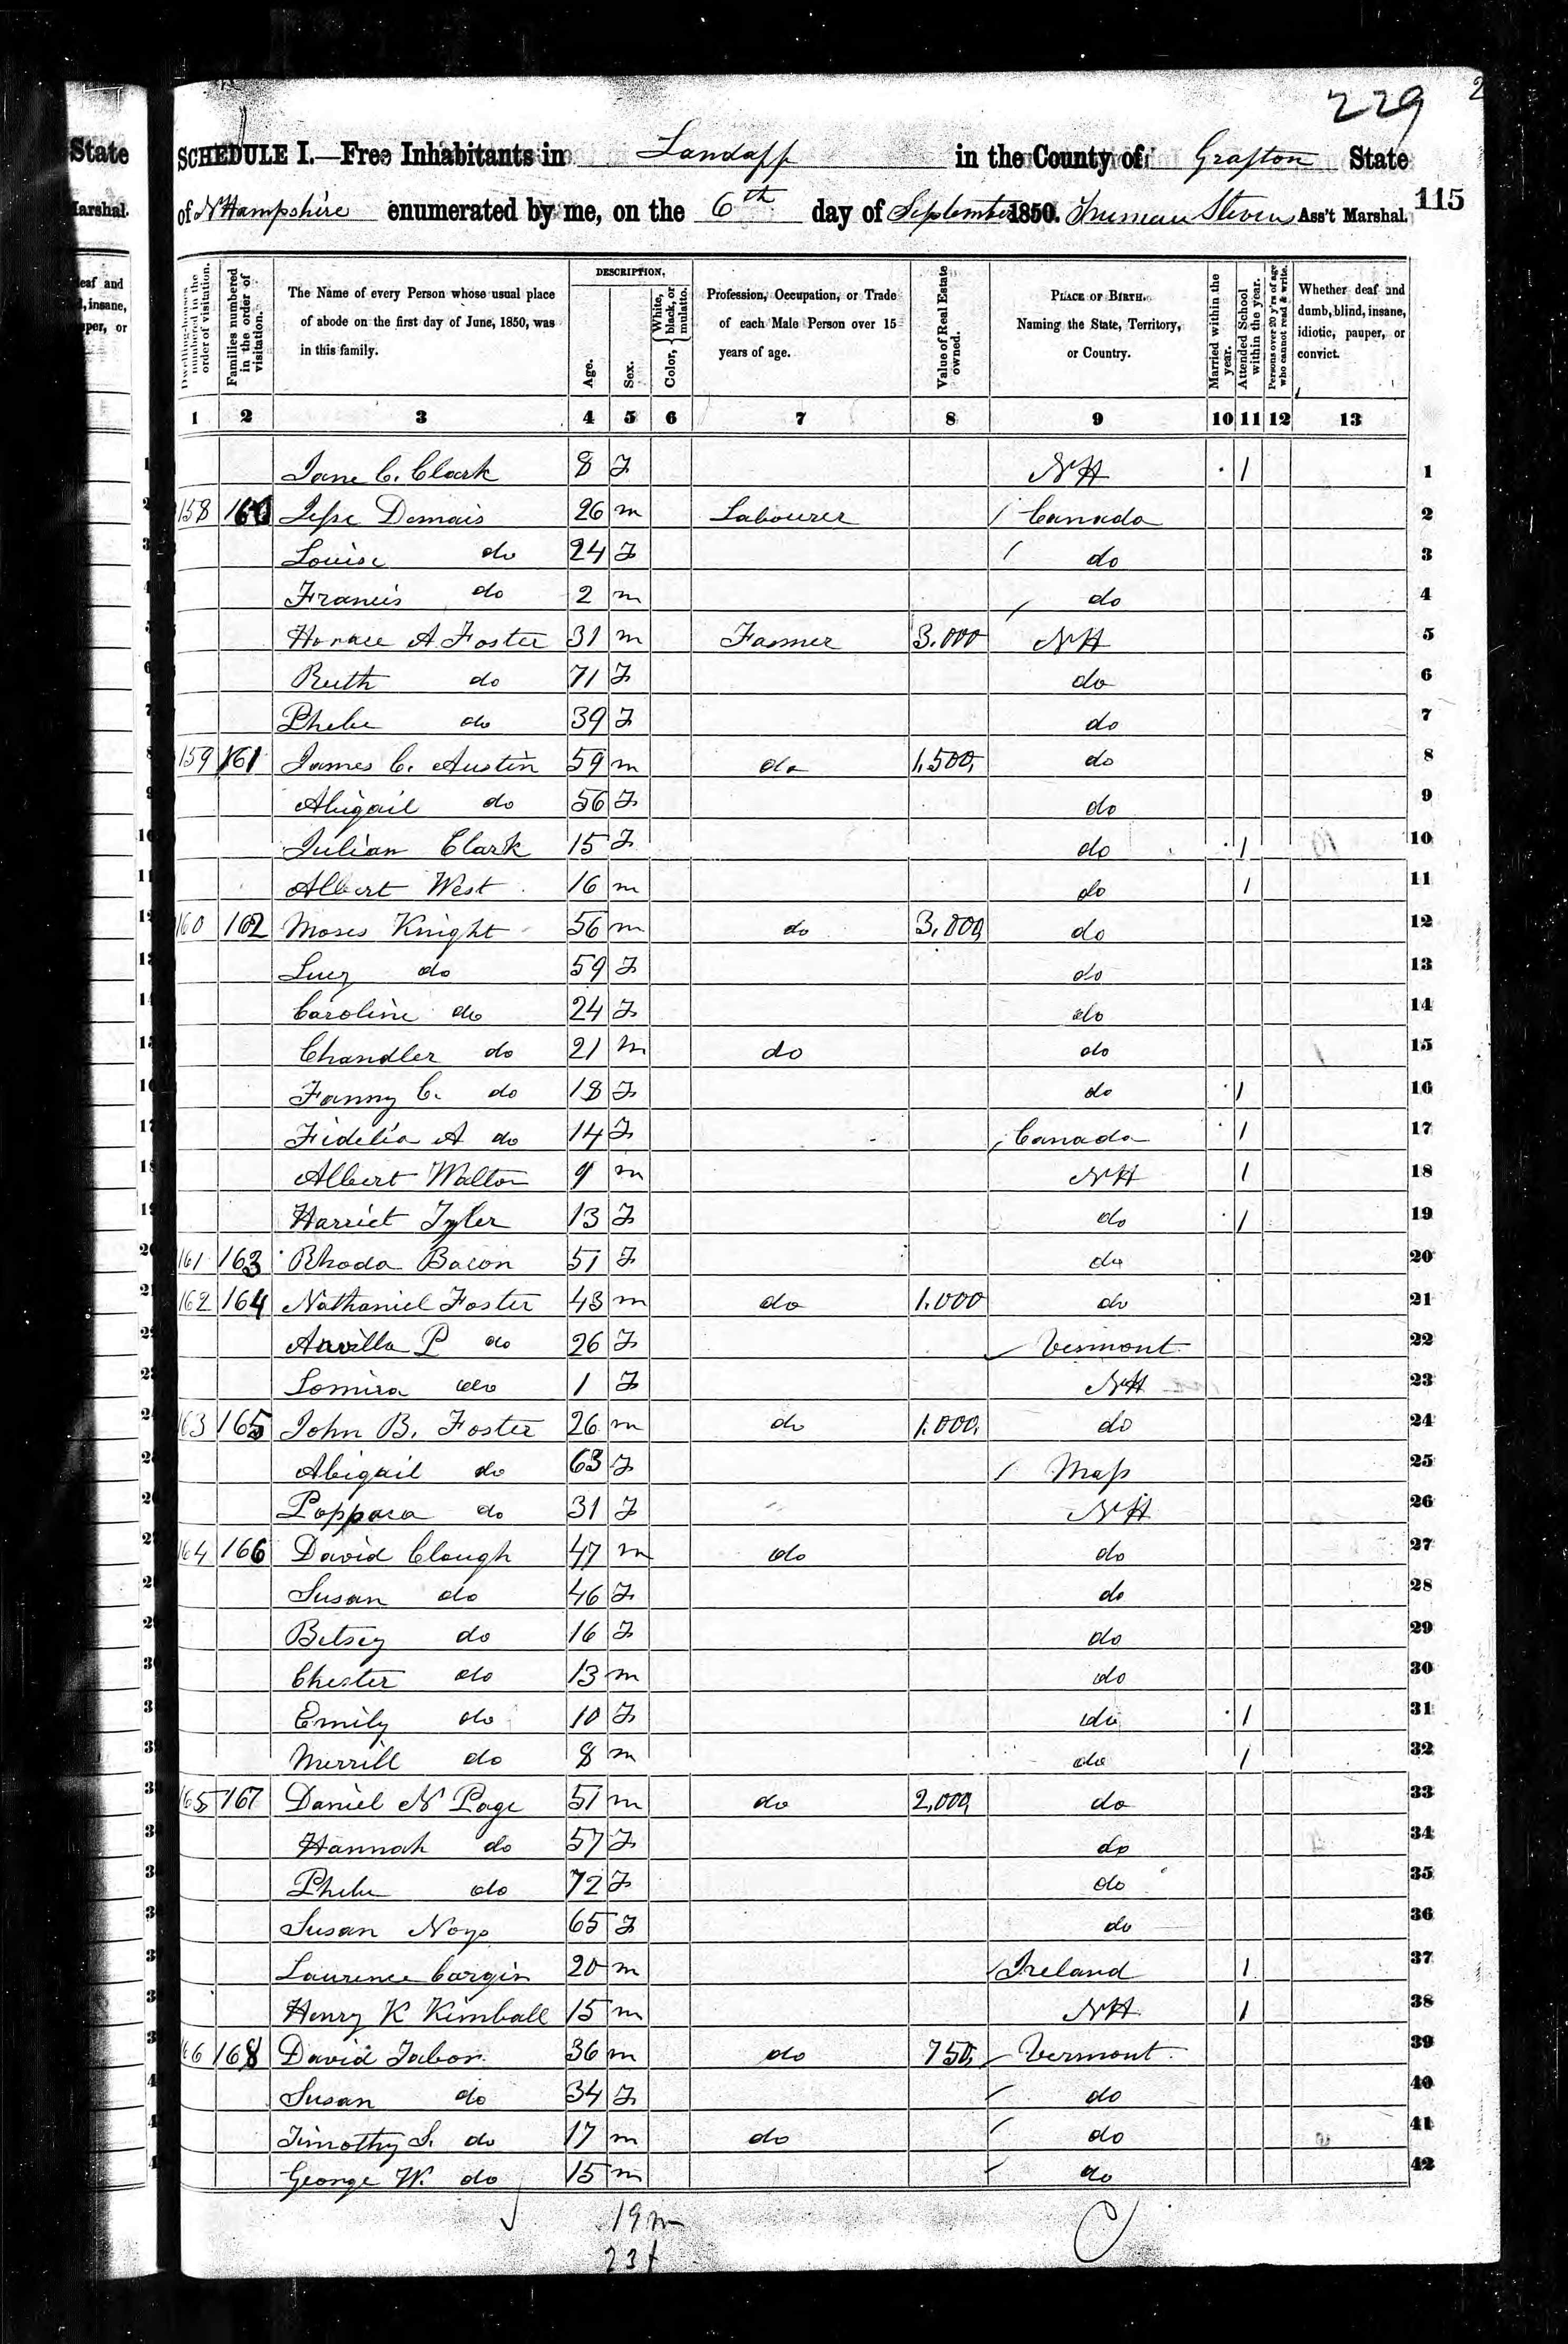 229
SCHEDULE I.—Free Inhabitants in Landaff in the County of Grafton State
of N Hampshire enumerated by me, on the 6th day of September 1850. Truman Stevens Ass't Marshal. 115
State
Marshal.
DESCRIPTION.
Dwelling-houses numbered in the order of visitation.
Families numbered in the order of visitation.
The Name of every Person whose usual place of abode on the first day of June, 1850, was in this family.
Age.
Sex.
Color, White, black, or mulatto.
Profession, Occupation, or Trade of each Male Person over 15 years of age.
Value of Real Estate owned.
PLACE OF BIRTH. Naming the State, Territory, or Country.
Married within the year.
Attended School within the year.
Persons over 20 y'rs of age who cannot read & write.
Whether deaf and dumb, blind, insane, idiotic, pauper, or convict.
1 2 3 4 5 6 7 8 9 10 11 12 13
Jane C. Clark 8 F NH 1 1
158 160 Jesse Demais 26 m Labourer Canada 2
Louise do 24 F do 3
Francis do 2 m do 4
Horace A. Foster 31 m Farmer 3.000 NH 5
Ruth do 71 F do 6
Phebe do 39 F do 7
159 161 James C. Austin 59 m do 1,500, do 8
Abigail do 56 F do 9
Julian Clark 15 F do 1 10
Albert West 16 m do 1 11
160 162 Moses Knight 56 m do 3,000, do 12
Lucy do 59 F do 13
Caroline do 24 F do 14
Chandler do 21 m do do 15
Fanny C. do 18 F do 1 16
Fidelia A do 14 F Canada 1 17
Albert Walton 9 m NH 1 18
Harriet Tyler 13 F do 1 19
161 163 Rhoda Bacon 51 F do 20
162 164 Nathaniel Foster 43 m do 1.000 do 21
Arvilla P do 26 F Vermont 22
Lomira do 1 F NH 23
163 165 John B. Foster 26 m do 1.000. do 24
Abigail do 63 F Mass 25
do 31 F NH 26
164 166 David Clough 47 m do do 27
Susan do 46 F do 28
Betsey do 16 F do 29
Chester do 13 m do 30
Emily do 10 F do 1 31
Merrill do 8 m do 1 32
165 167 Daniel N Page 51 m do 2,000, do 33
Hannah do 57 F do 34
Phebe do 72 F do 35
Susan Noyes 65 F do 36
Laurence Cargin 20 m Ireland 1 37
Henry K Kimball 15 m NH 1 38
166 168 David Tabor 36 m do 750, Vermont 39
Susan do 34 F do 40
Timothy S. do 17 m do do 41
George W. do 15 m do 42
19 m
23 f